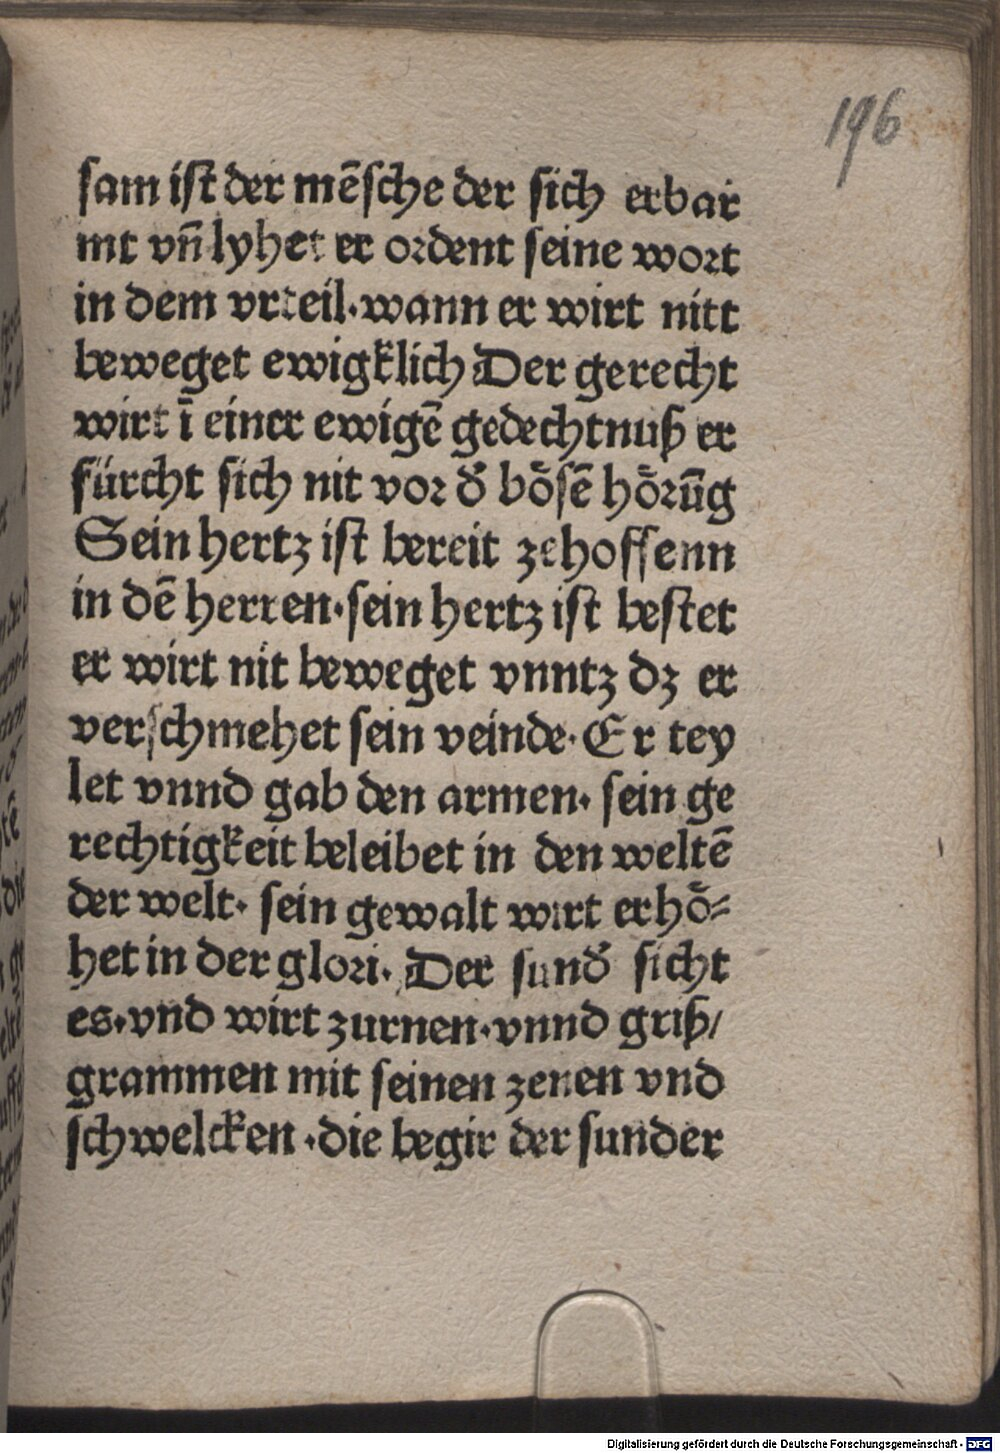 196
sam ist der mēsche der sich erbar
mt vn̄ lyhet er ordent seine wort
in dem vrteil·wann er wirt nitt
beweget ewigklich Der gerecht
wirt ī einer ewigē gedechtnuß er
fürcht sich nit vor d̄ bösē hörūg
Sein hertz ist bereit zehoffenn
in dē herren·sein hertz ist bestet
er wirt nit beweget vnntz dz er
verschmehet sein veinde·Er tey
let vnnd gab den armen· sein ge
rechtigkeit beleibet in den weltē
der welt· sein gewalt wirt erhö⸗
het in der glori· Der sund̄ sicht
es·vnd wirt zurnen·vnnd griß/
grammen mit seinen zenen vnd
schwelcken ·die begir der sunder
Digitalisierung gefördert durch die Deutsche Forschungsgemeinschaft - DFG